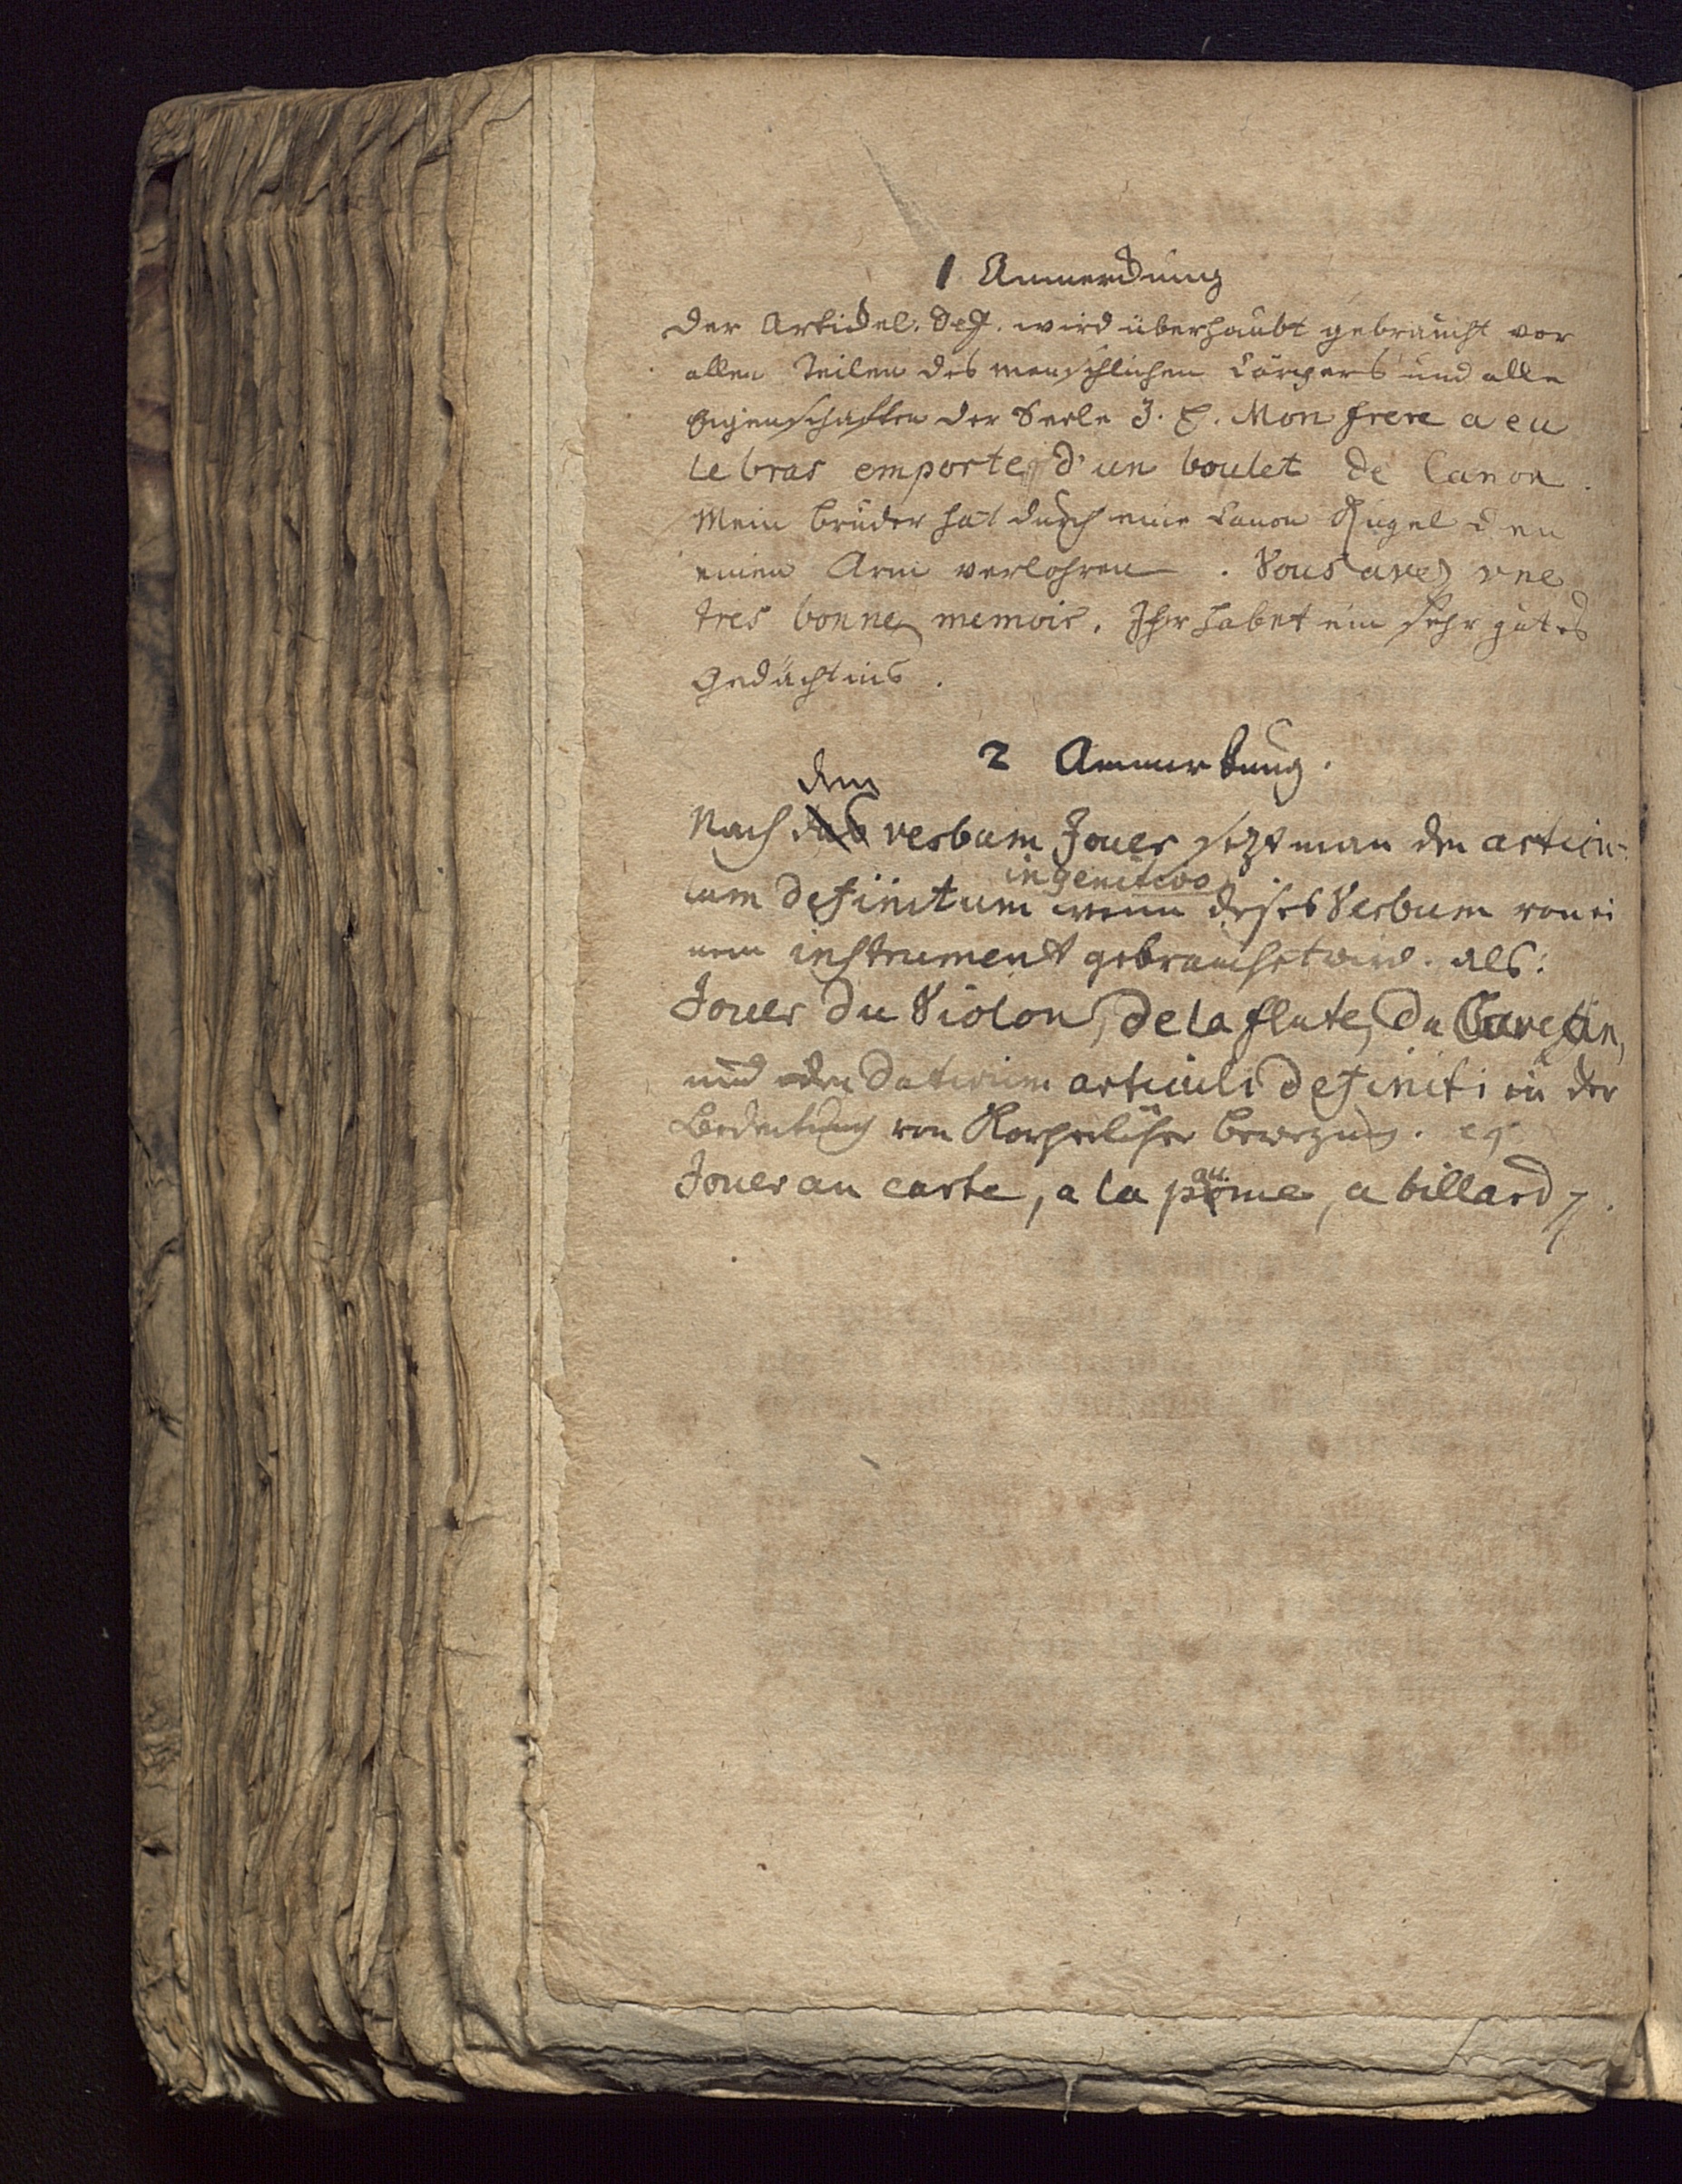 1 Anmerckung
Der Artickel. Def. wird überhaubt gebraucht vor
allen Teilen des menschlichen Cörpers und alle
Eigenschaften der Seele Z. E. Mon frere a eu
le bras emporte d'un boulet de Canon.
Mein bruder hat durch eine Canon Kugel den
einen Arm verlohren. Vous avez vne
tres bonne memoir. Ihr habet ein sehr gutes
Gedächtnis.
2 Anmerkung.
dem
Nach das verbum Jouer sezt man den articu-
in genitivo
lum definitum wenn dises Verbum von ei
nem instrument gebrauchet wird. als:
Jouer du Violon, de la flute, du Clavecin,
und den Dativum articuli definiti in der
Bedeutung von Korperlicher bewegung. eg
au
Jouer au carte, a la pome, a billard